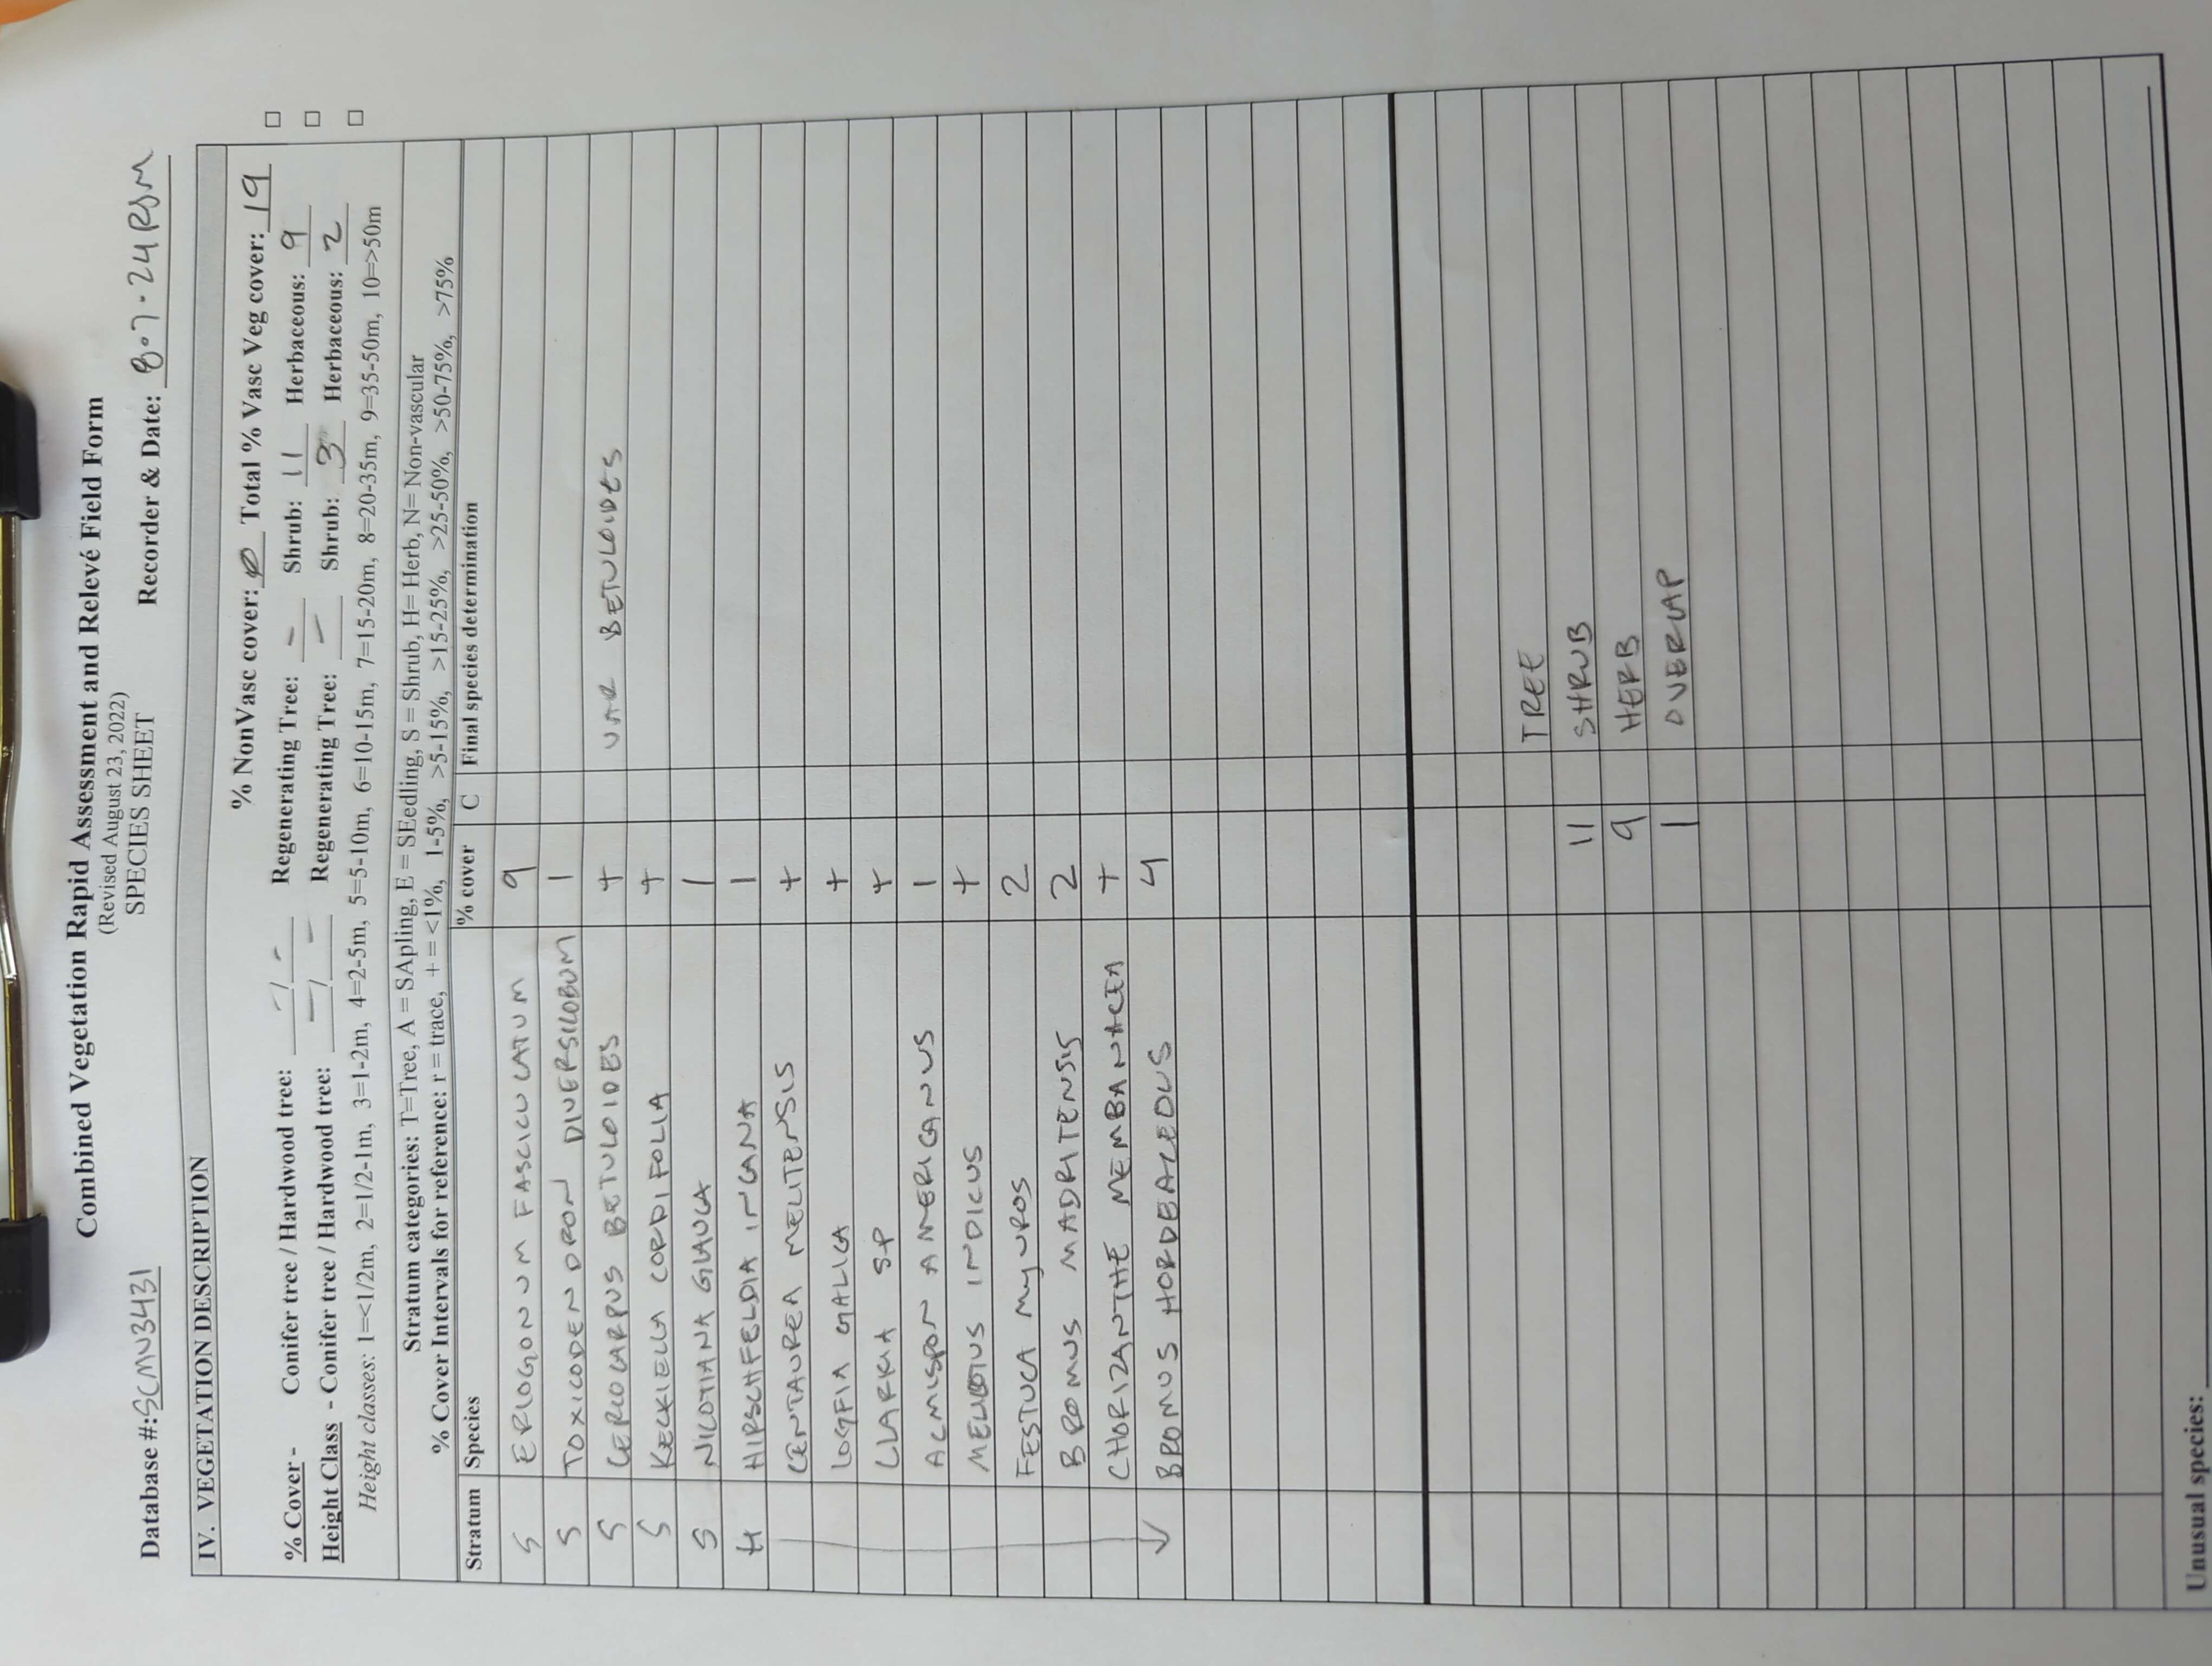 Combined Vegetation Rapid Assessment and Relevé Field Form
(Revised August 23, 2022)
SPECIES SHEET
Database #: SCMV3431 Recorder & Date: 8.7.24 RSM
IV. VEGETATION DESCRIPTION
% NonVasc cover: Ø Total % Vasc Veg cover: 19
% Cover - Conifer tree / Hardwood tree: - / - Regenerating Tree: - Shrub: 11 Herbaceous: 9 □
Height Class - Conifer tree / Hardwood tree: - / - Regenerating Tree: - Shrub: 3 Herbaceous: 2 □
Height classes: 1=<1/2m, 2=1/2-1m, 3=1-2m, 4=2-5m, 5=5-10m, 6=10-15m, 7=15-20m, 8=20-35m, 9=35-50m, 10=>50m □
Stratum categories: T=Tree, A = SApling, E = SEedling, S = Shrub, H= Herb, N= Non-vascular
% Cover Intervals for reference: r = trace, + = <1%, 1-5%, >5-15%, >15-25%, >25-50%, >50-75%, >75%
Stratum Species % cover C Final species determination
S ERIOGONUM FASCICULATUM 9
S TOXICODENDRON DIVERSILOBUM 1
S CERCOCARPUS BETULOIDES + VAR BETULOIDES
S KECKIELLA CORDIFOLIA +
S NICOTIANA GLAUCA 1
H HIRSCHFELDIA INCANA 1
CENTAUREA MELITENSIS +
LOGFIA GALLICA +
CLARKIA SP +
ACMISPON AMERICANUS 1
MELILOTUS INDICUS +
FESTUCA MYUROS 2
BROMUS MADRITENSIS 2
CHORIZANTHE MEMBANACEA +
↓ BROMUS HORDEACEOUS 4
TREE
11 SHRUB
9 HERB
1 OVERLAP
Unusual species: